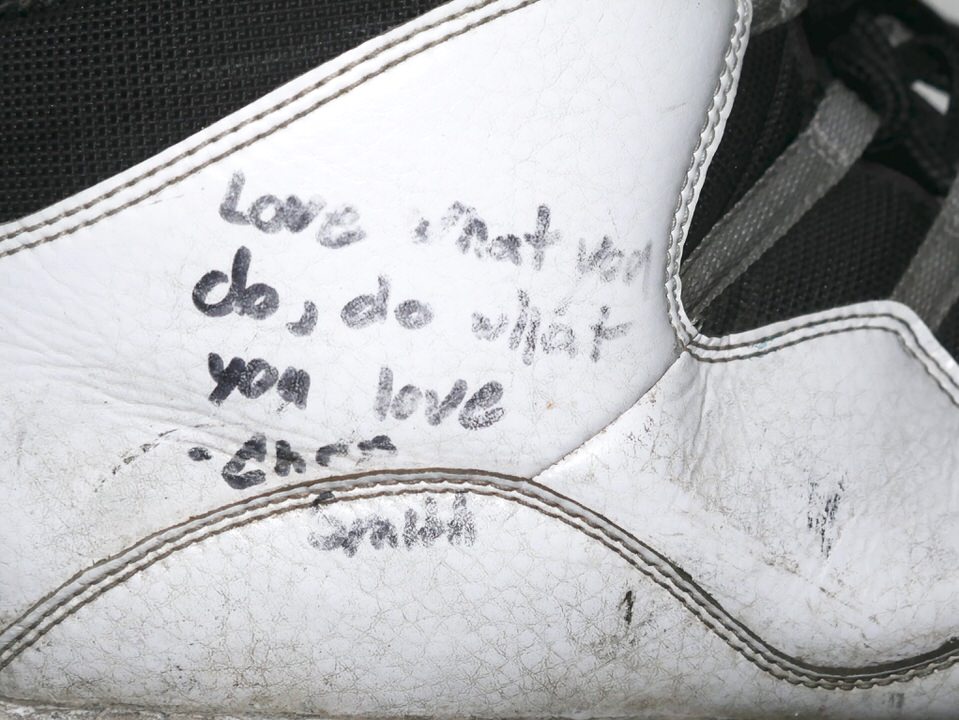 Love what you
do, do what
you love
Smith